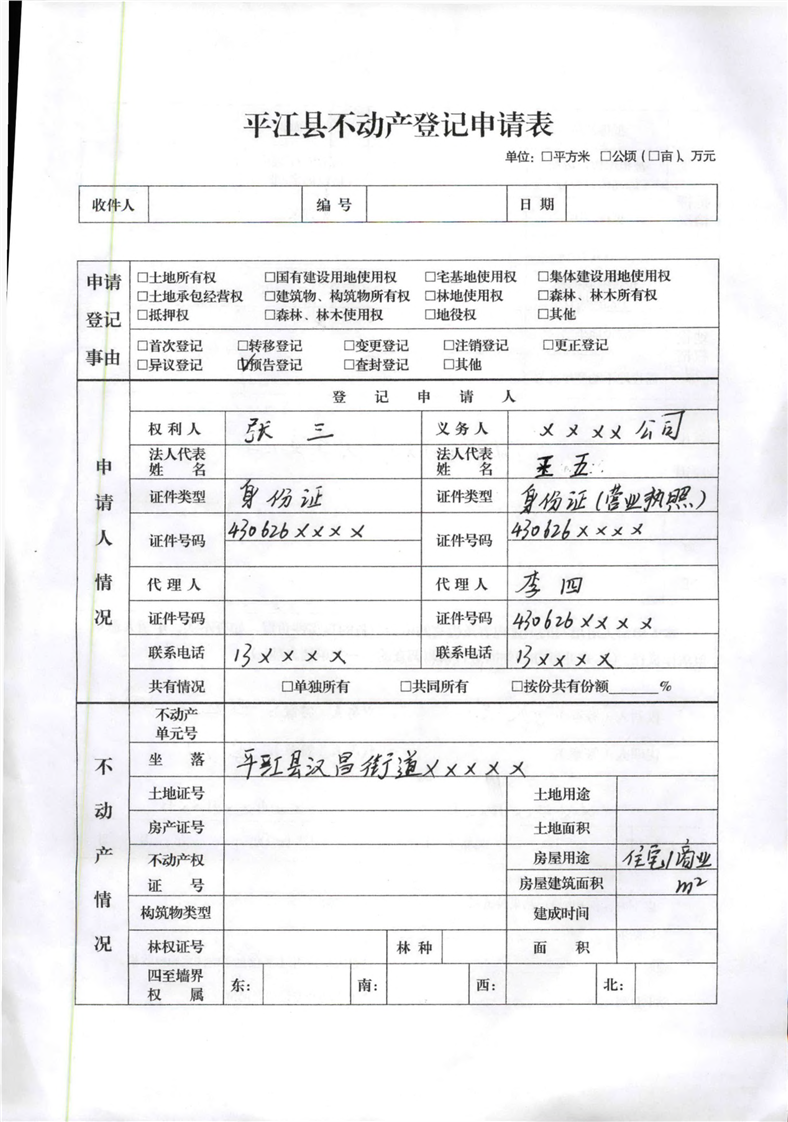 平江县不动产登记申请表
单位：□平方米 □公顷（□亩）、万元
收件人 编 号 日 期
申请登记事由
□土地所有权 □国有建设用地使用权 □宅基地使用权 □集体建设用地使用权
□土地承包经营权 □建筑物、构筑物所有权 □林地使用权 □森林、林木所有权
□抵押权 □森林、林木使用权 □地役权 □其他
□首次登记 □转移登记 □变更登记 □注销登记 □更正登记
□异议登记 ☑预告登记 □查封登记 □其他
申请人情况
登 记 申 请 人
权利人 张 三 义务人 ××××公司
法人代表姓名 法人代表姓名 王五
证件类型 身份证 证件类型 身份证（营业执照）
证件号码 430626×××× 证件号码 430626××××
代理人 代理人 李四
证件号码 证件号码 430626××××
联系电话 13×××× 联系电话 13××××
共有情况 □单独所有 □共同所有 □按份共有份额______%
不动产情况
不动产单元号
坐 落 平江县汉昌街道×××××
土地证号 土地用途
房产证号 土地面积
不动产权证 号 房屋用途 住宅/商业
房屋建筑面积 m²
构筑物类型 建成时间
林权证号 林 种 面 积
四至墙界权 属 东： 南： 西： 北：